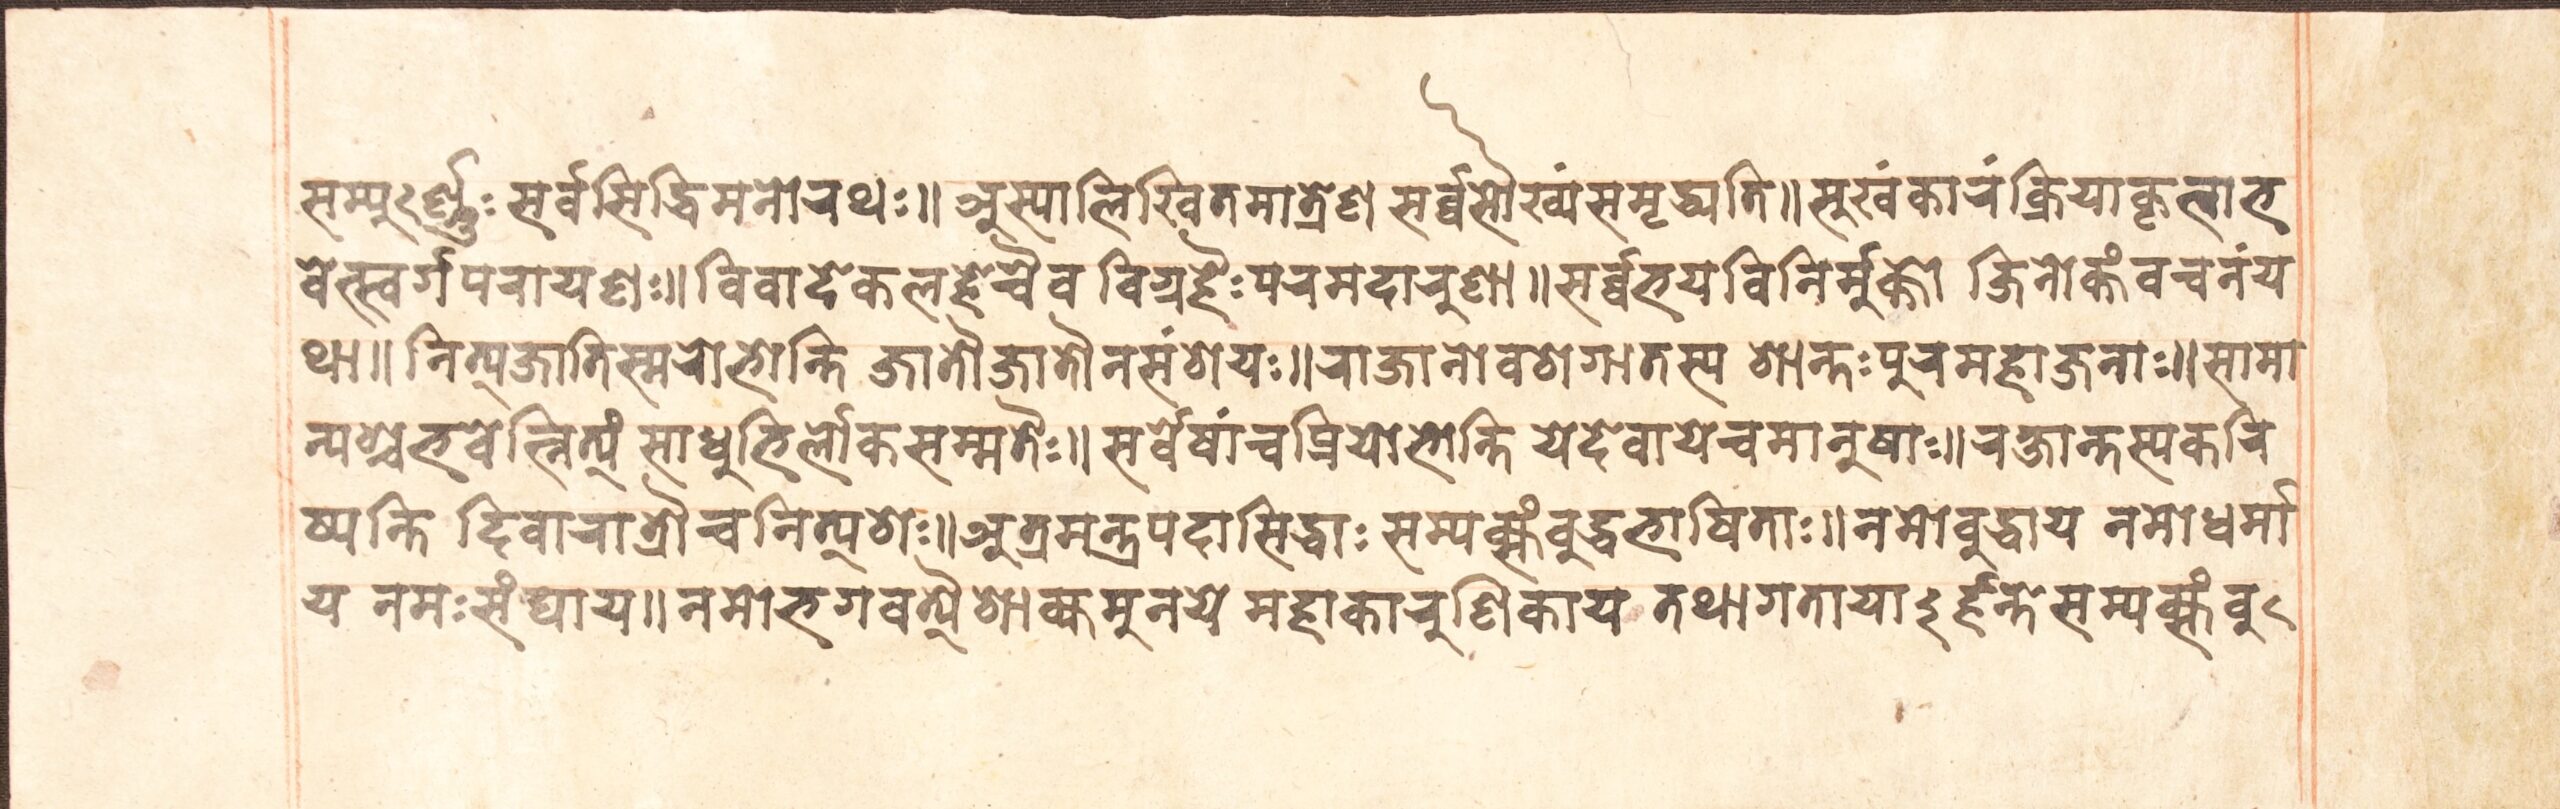 सम्पुर्ण्णुः सर्वसिद्धिमनोरथः॥ अस्यालिखितमात्रेण सर्व्वसौख्यंसमृद्ध्यति॥सुखंकारंक्रियाकृत्वाभ
वेत्स्वर्गपरायणः॥विवादेकलहेचैव विग्रहैःपरमदारुणा॥सर्व्वभयविनिर्मुक्तो जिनोक्तंवचनंय
था॥ नित्यजातिस्मरोभोन्ति जातौजातौनसंशेयः॥राजानोवशेगातस्य शान्तःपुरमहाजनाः॥सामा
न्यश्चभवेन्नित्यं साधुभिर्लोकसम्मतैः॥ सर्वेषांचप्रियोभोन्ति येदेवायेचमानुषाः॥रक्षान्तस्यकरि
ष्यन्ति दिवारात्रौचनित्यशेः॥अत्रमन्त्रपदासिद्धाः सम्यक्संबुद्धभाषिताः॥नमोबुद्धाय नमोधर्मा
य नमःसंघाय॥नमोभगवत्यैशाक्यमुनये महाकारुणिकाय तथागतायाऽर्हन्तेसम्यक्संबु